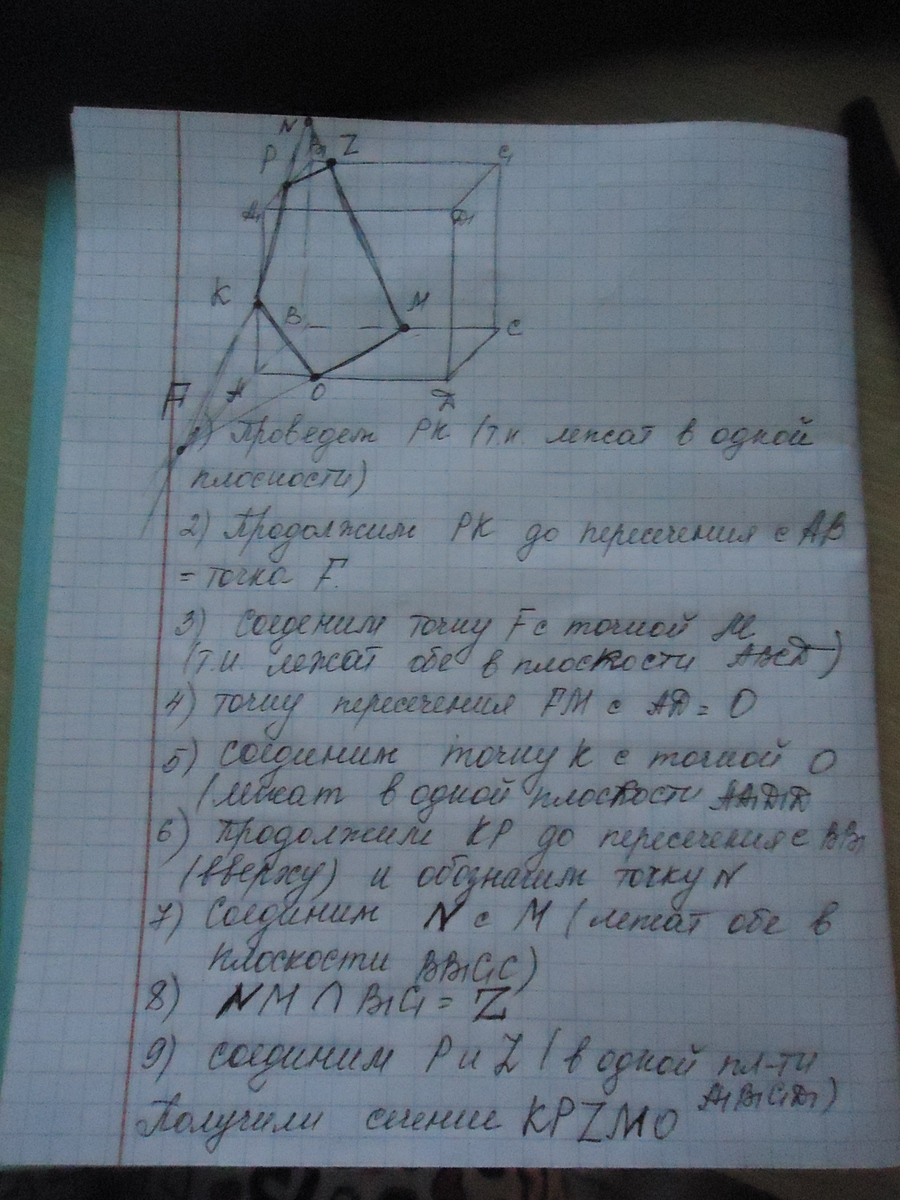 N
P B₁ Z C₁
A₁ D₁
K B M C
F A O D
1) Проведем PK (т.к. лежат в одной
плоскости)
2) Продолжим PK до пересечения с AB
= точка F.
3) Соеденим точку F с точкой M
(т.к. лежат обе в плоскости ABCD)
4) точку пересечения FM с AD = O
5) Соединим точку K с точкой O
(лежат в одной плоскости AA₁D₁D
6) Продолжим KP до пересечения с BB₁
(вверху) и обозначим точку N
7) Соединим N с M (лежат обе в
плоскости BB₁C₁C)
8) NM ∩ B₁C₁ = Z
9) соединим P и Z (в одной пл-ти
A₁B₁C₁D₁)
Получили сечение KPZMO